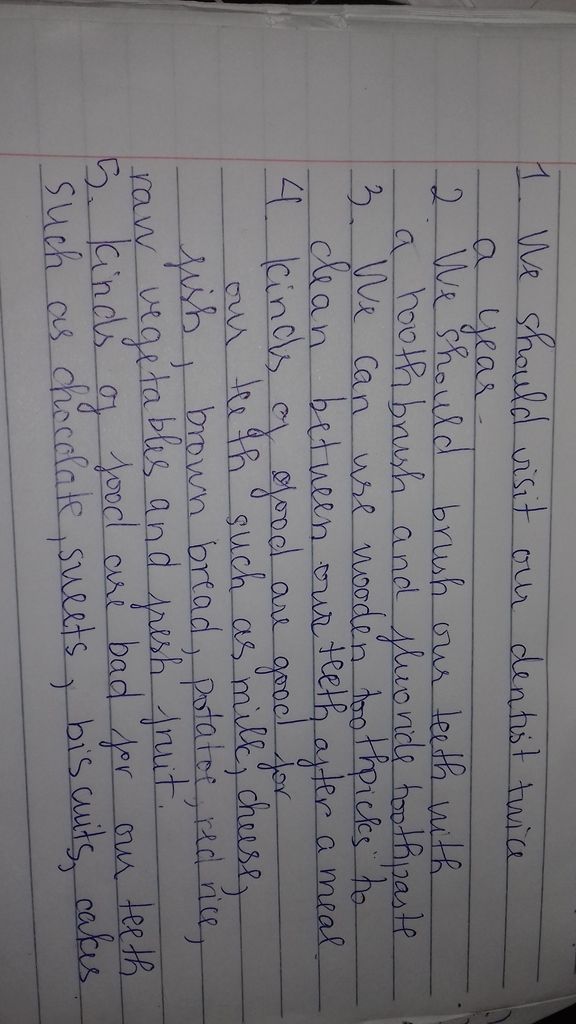 1. We should visit our dentist twice
a year.
2. We should brush our teeth with
a toothbrush and fluoride toothpaste
3. We can use wooden toothpicks to
clean between our teeth after a meal
4 kinds of good are good for
our teeth such as milk, cheese,
fish, brown bread, potatoe, red rice,
raw vegetables and fresh fruit.
5. kinds of food are bad for our teeth
such as chocolate, sweets, biscuits, cakes